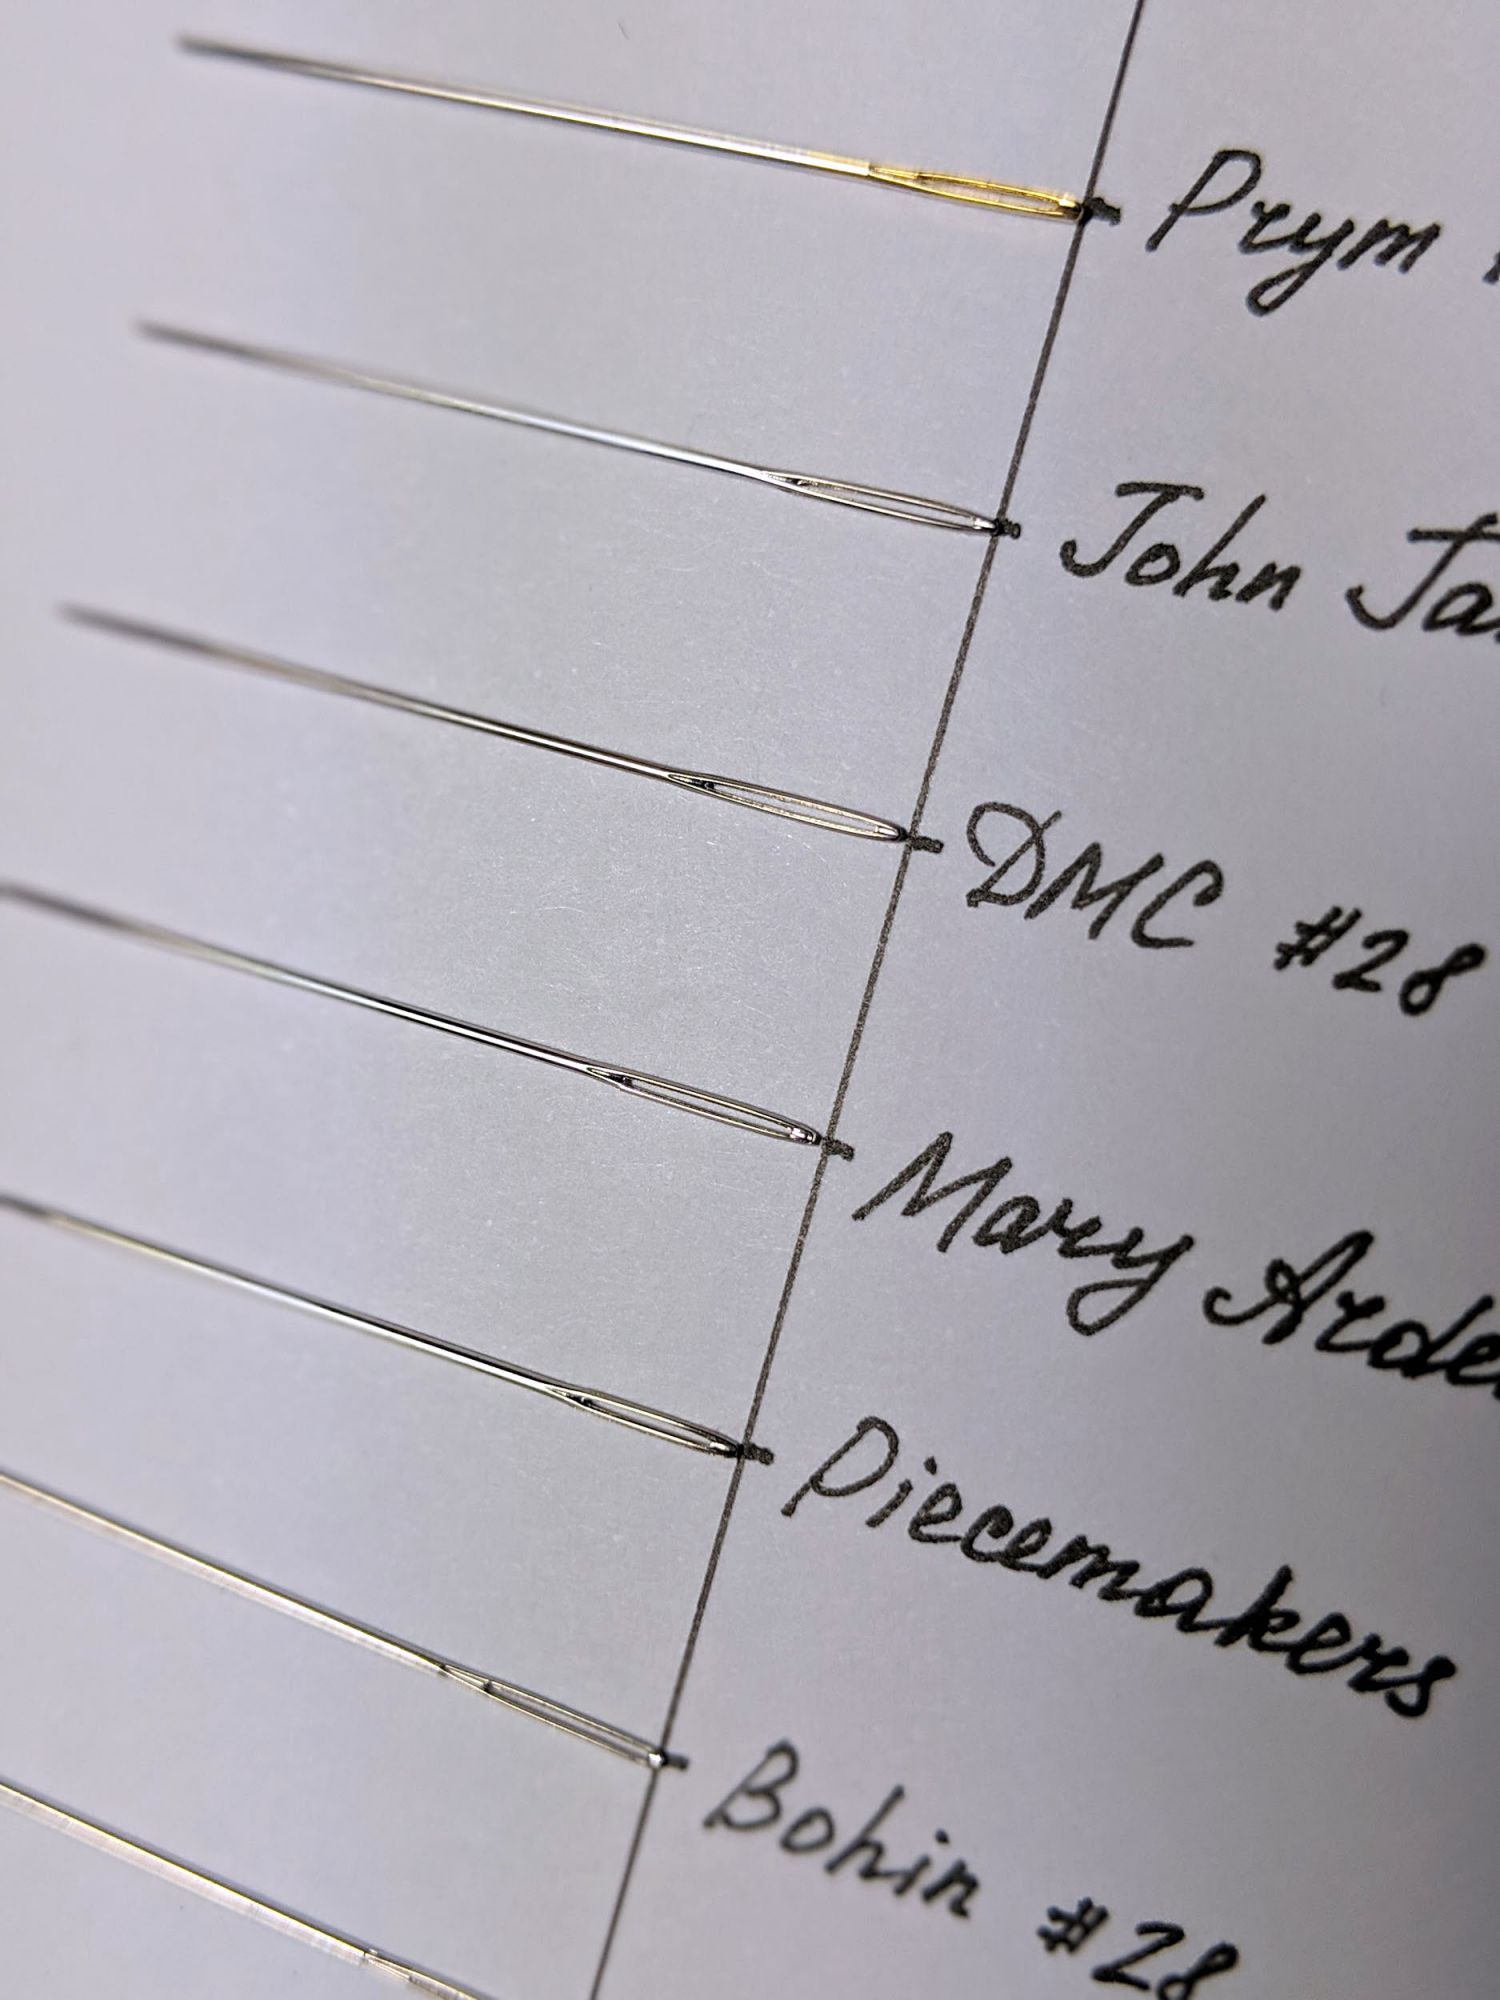 Prym
John Ja
DMC #28
Mary Arde
Piecemakers
Bohin #28